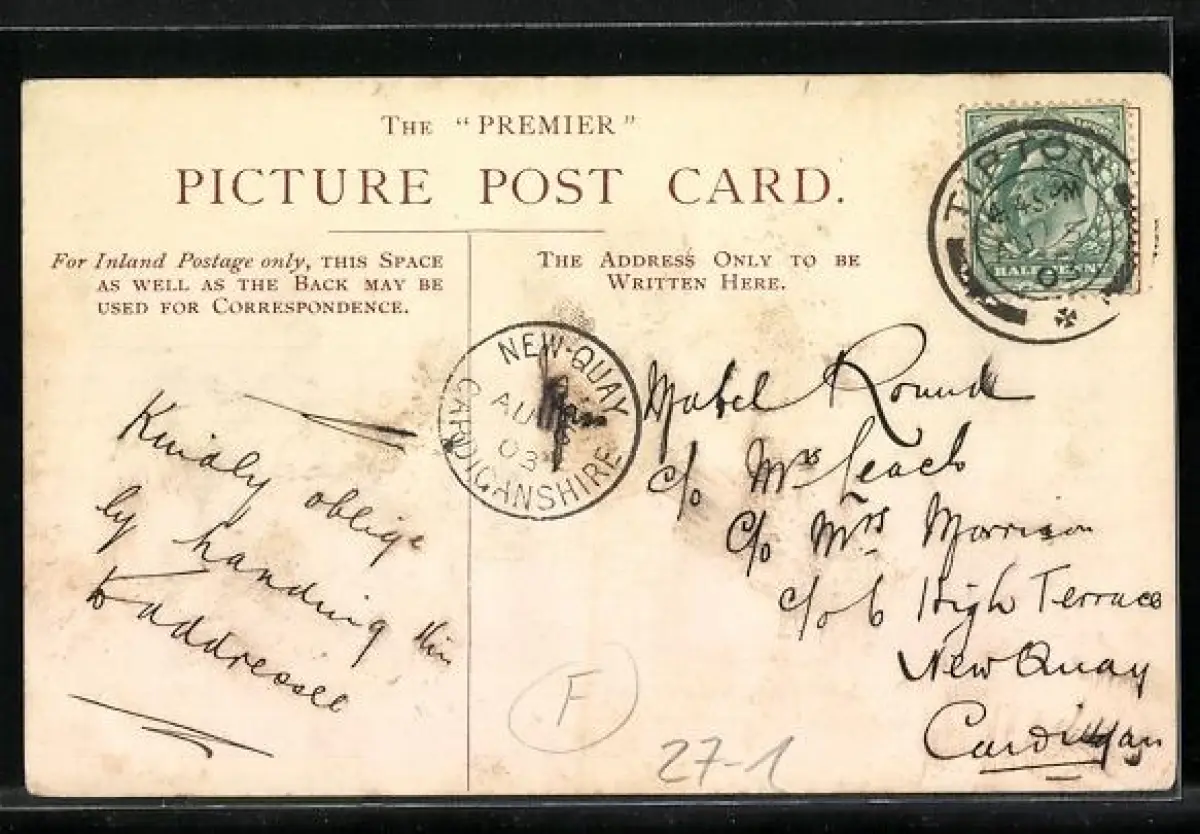 THE "PREMIER"
PICTURE POST CARD.
For Inland Postage only, THIS SPACE
AS WELL AS THE BACK MAY BE
USED FOR CORRESPONDENCE.
THE ADDRESS ONLY TO BE
WRITTEN HERE.
TIPTON
4.45 PM
AU
HALFPENNY
NEW-QUAY
AU
03
CARDIGANSHIRE
Kindly oblige
by handing this
to addressee
Mabel Round
c/o Mrs Leach
c/o Mrs Morrison
6 High Terrace
New Quay
Cardigan
F
27-1